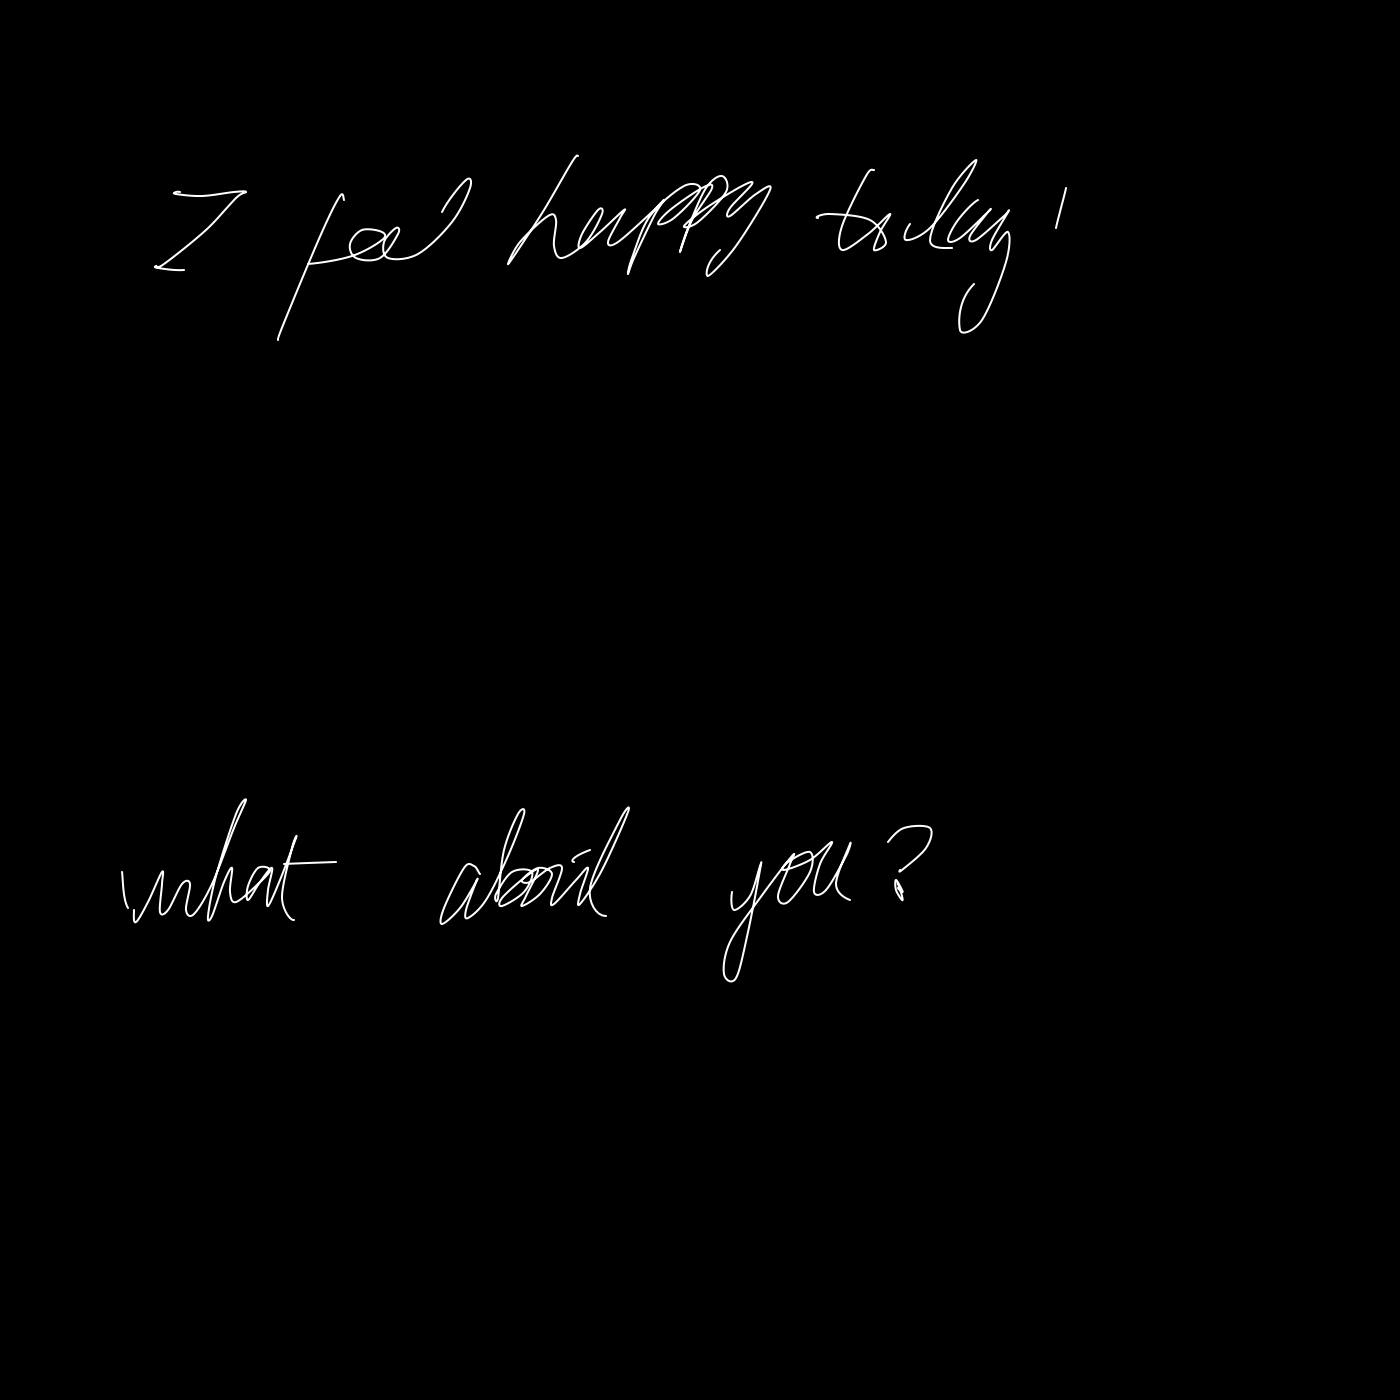 I feel happy today!
what about you?